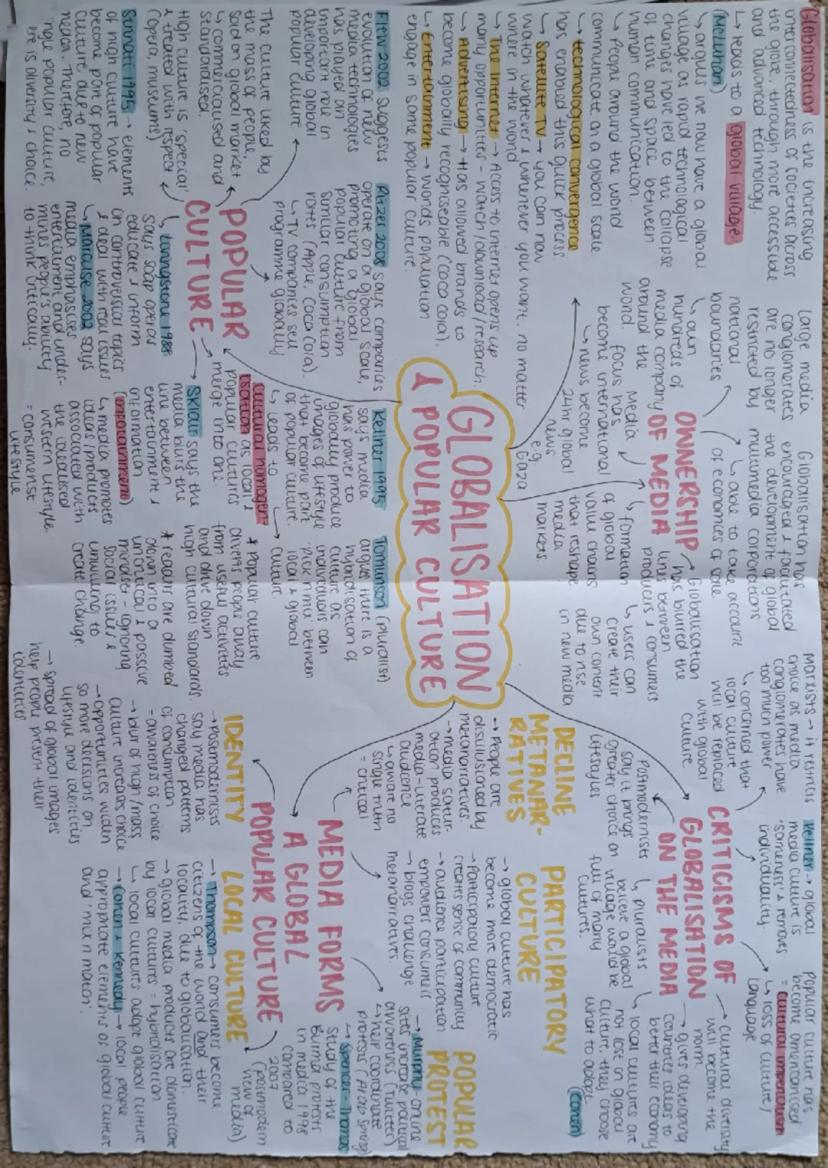 Globalisation is the increasing
interconnectedness of societies across
the globe, through more accessible
and advanced technology
↳ leads to a global village
(McLuhan)
↳ argues we now have a global
village as rapid technological
changes have led to the collapse
of time and space between
human communication.
↳ People around the world
communicate on a global scale
↳ technological convergence
has enabled this quick process
↳ Satellite TV → you can now
watch whatever & whenever you want, no matter
where in the world
↳ The Internet → Access to internet opens up
many opportunities - watch/download/research.
↳ Advertising → Has allowed brands to
become globally recogniseable (coca cola).
↳ Entertainment → Worlds population
engage in some popular culture.
large media
conglomerates
are no longer
restricted by
national
boundaries
↳ own
hundreds of
media company
around the
world.
OWNERSHIP
OF MEDIA
Globalisation has
encouraged & facilitated
the development of global
multimedia corporations
↳ able to take account
of economies of scale
→ Globalisation
has blurred the
lines between
producers & consumers
↳ users can
create their
own content
due to rise
in new media
↳ formation
of global
value chains
that reshape
media
markets.
Media
focus has
become international
↳ news become
24hr global
news
e.g.
Gaza
Marxists → it restricts
choice as media
conglomerates have
too much power
↳ concerned that
local culture
will be replaced
with global
culture
Kellner → global
media culture is
'sameness' & removes
individuality.
popular culture has
become americanised
= cultural imperialism
↳ loss of culture/
language
CRITICISMS OF
GLOBALISATION
ON THE MEDIA
→ cultural diversity
will become the
norm.
→ gives developing
countries ideas to
better their economy
↳ local cultures are
not lose in global
culture, they choose
what to adopt
(Cohen)
↳ pluralists
believe a global
village would be
full of many
cultures.
Postmodernists
say it brings
greater choice on
lifestyles
GLOBALISATION
& POPULAR CULTURE
POPULAR
CULTURE
Flew 2002 suggests
evolution of new
media technologies
has played an
important role in
developing global
popular culture
The culture liked by
the mass of people,
sold on global market
↳ commercialised and
standardised.
High culture is 'special'
& treated with respect
(opera, museums)
Strinati 1995 - elements
of high culture have
become part of popular
culture due to new
media. Therefore, no
single popular culture,
life is diversity & choice
Ritzer 2008 says companies
operate on a global scale,
promoting a global
popular culture from
similar consumption
rates (Apple, Coca Cola).
↳ TV companies sell
programme globally
↳ Livingstone 1988
says soap operas
educate & inform
on controversial topics
& deal with real issues
↳ Marcuse 2002 says
media emphasises
entertainment and under-
mines people's ability
to think critically.
Kellner 1995
says media
has power to
globally produce
images of lifestyle
that become part
of popular culture.
↳ leads to
cultural homogen-
isation as local &
popular cultures
merge into one.
→ Sklair says the
media blurs the
line between
entertainment &
information
(infotainment)
↳ media promotes
ideas/products
associated with
the idealised
western lifestyle.
= consumerist
lifestyle
Tomlinson (pluralist)
argues there is a
hybridisation of
culture as
individuals can
pick n mix between
local & global
culture
* Popular culture
divert people away
from useful activities
and drive down
high cultural standards.
* reality are dumbed
down into a
uncritical & passive
mindset - ignoring
social issues &
unwilling to
create change.
DECLINE
METANAR-
RATIVES
→ People are
disillusioned by
metanarratives
→ media satur-
ation produces
media-literate
audience
↳ aware no
single truth
= critical
PARTICIPATORY
CULTURE
→ global culture has
become more democratic
→ Participatory culture
creates sense of community
→ audience participation
empower consumers
→ blogs challenge
metanarratives.
POPULAR
PROTEST
→ Murphy - online
sites increase political
awareness (Twitter)
↳ hair coordinate
protests (Arab Spring)
→ Spencer-Thomas
study of the
Burma protests
in media 1998
compared to
2007
MEDIA FORMS
A GLOBAL
POPULAR CULTURE
(Postmodern
view of
media)
IDENTITY
→ Postmodernists
say media has
changed patterns
of consumption
= awareness of choice
→ blur of high/mass
culture increases choice
→ opportunities widen
so more decisions on
lifestyle and identities
→ spread of global images
help people present their
identities
LOCAL CULTURE
→ Thompson → consumers become
citizens of the world and their
locality, due to globalisation.
→ global media products are domesticated
by local cultures = hybridisation
↳ local cultures adopt global culture
→ Cohen & Kennedy → local people
appropriate elements of global culture
and 'mix n match'.